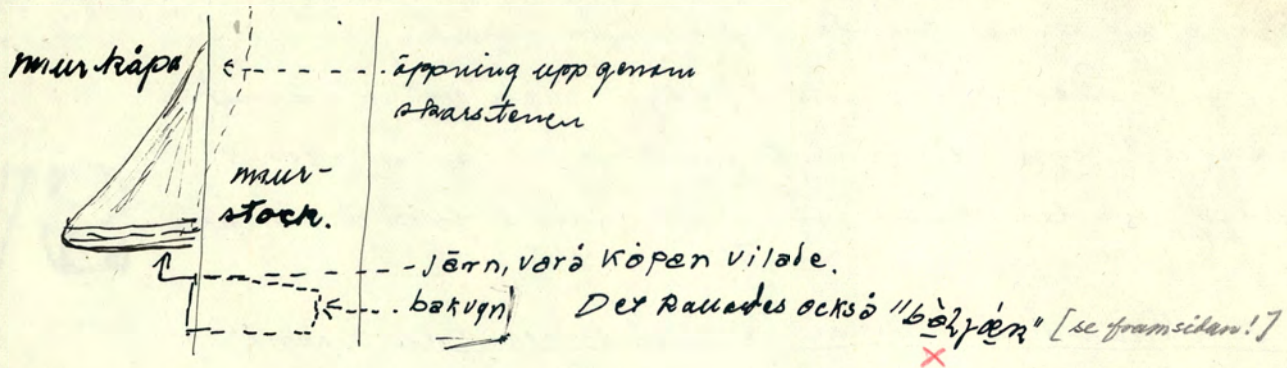 murkåpa
öppning upp genom
skorstenen
mur-
stock.
Järn, varå kåpan vilade.
bakugn
Det kallades också "
[se framsidan!]